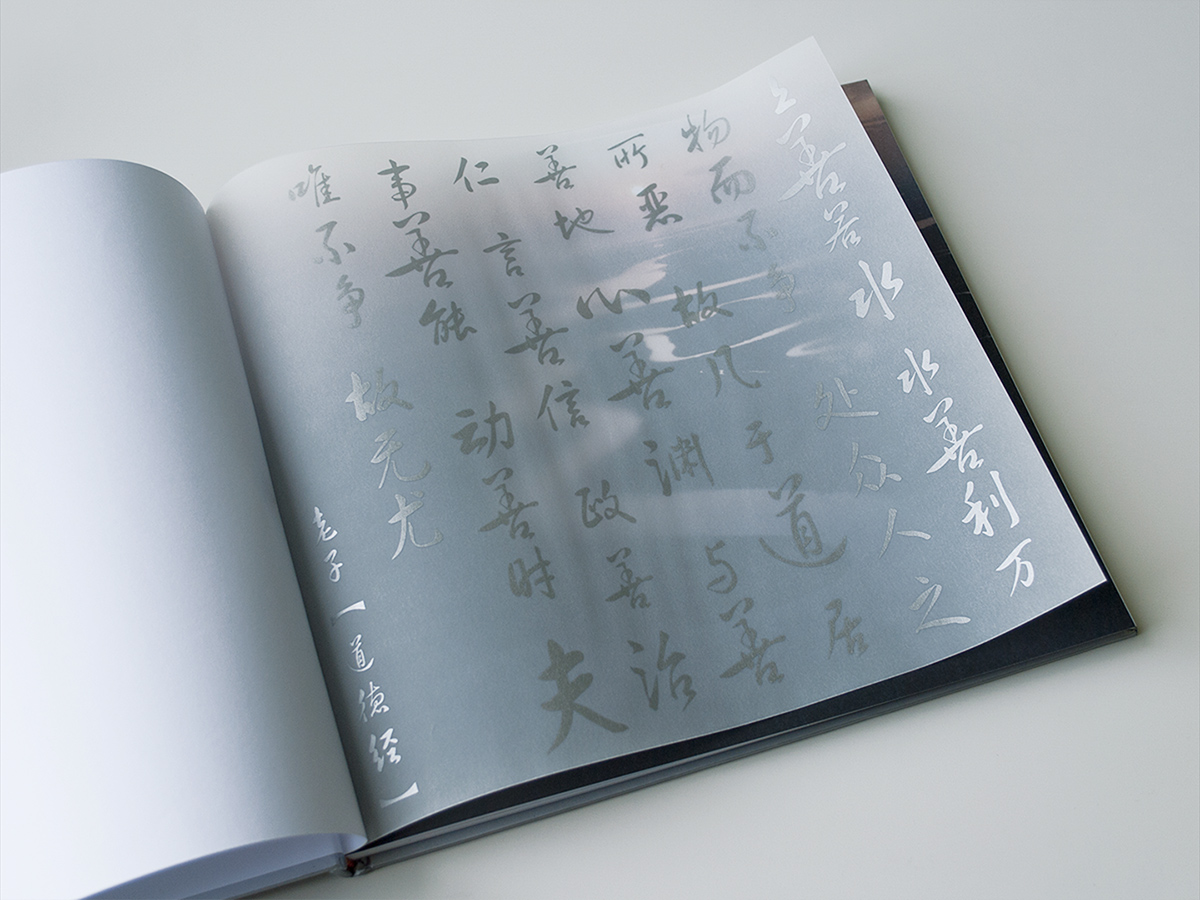 上善若水 水善利万
物而不争 处众人之
所恶 故几于道 居
善地 心善渊 与善
仁 言善信 政善治
事善能 动善时 夫
唯不争 故无尤
老子【道德经】